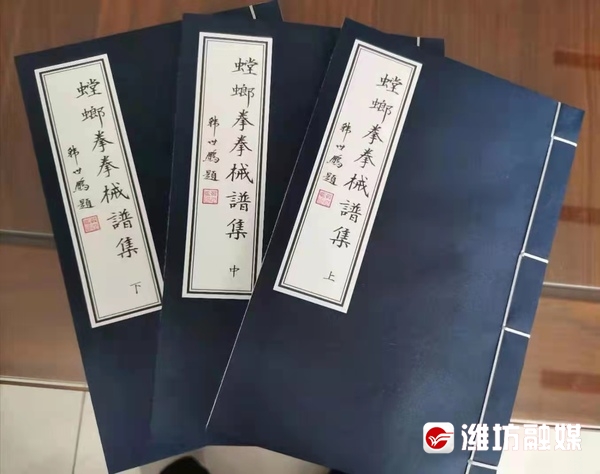 螳螂拳拳械譜集
韩世鹏題
下
螳螂拳拳械譜集
韩世鹏題
中
螳螂拳拳械譜集
韩世鹏題
上
潍坊融媒